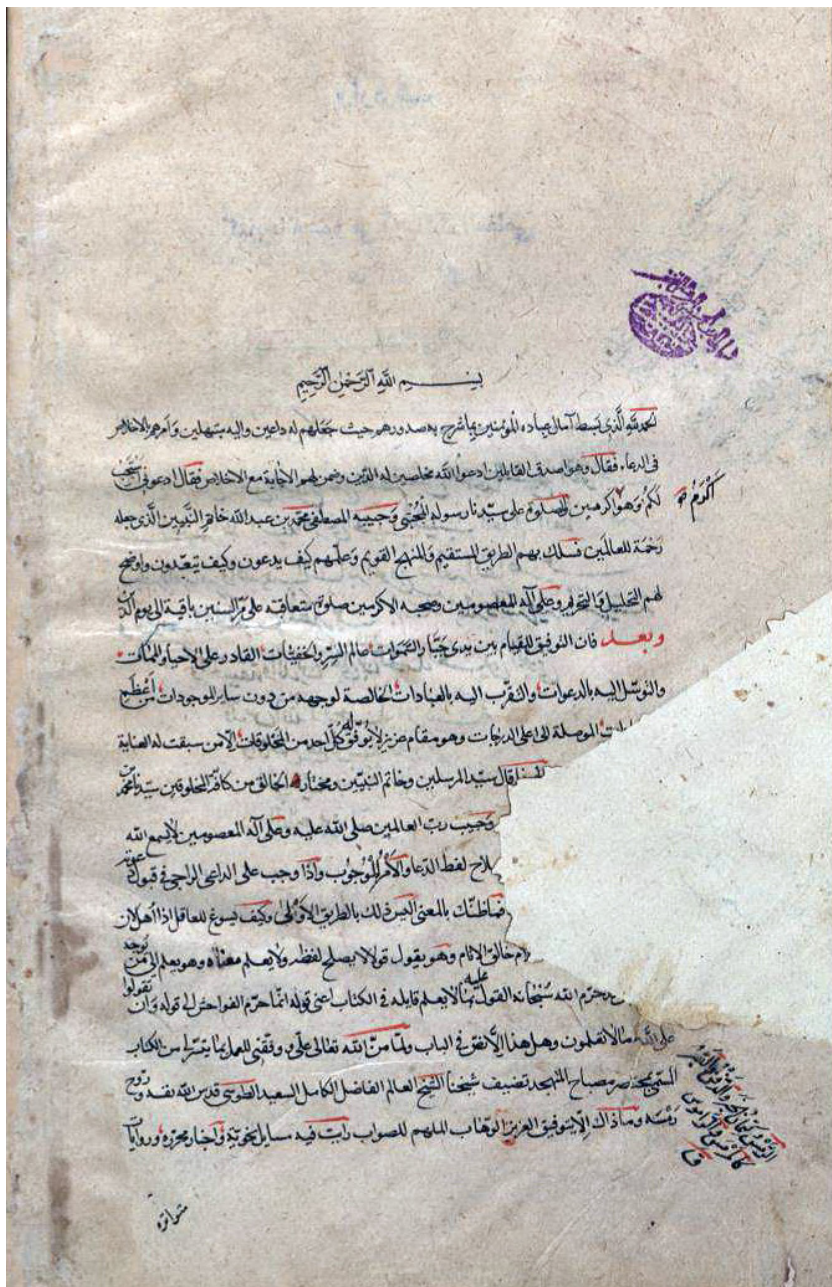 بسم الله الرحمن الرحيم
الحمد لله الذي بسط آمال عباده المؤمنين بما شرح به صدورهم حيث جعلهم له داعين واليه مبتهلين وامرهم بالاخلاص
في الدعاء فقال وهو اصدق القايلين ادعوا الله مخلصين له الدين وضمن لهم الاجابة مع الاخلاص فقال ادعوني استجب
لكم وهو اكرم من والصلوة على سيدنا رسوله المجتبى وحبيبه المصطفى محمد بن عبد الله خاتم النبيين الذي جعله
رحمة للعالمين فسلك بهم الطريق المستقيم والمنهج القويم وعلمهم كيف يدعون وكيف يتعبدون واوضح
لهم التحليل والتحريم وعلى آله المعصومين وصحبه الاكرمين صلوة متعاقبة على مر السنين باقية الى يوم الدين
وبعد فان التوفيق للقيام بين يدى جبار السموات عالم السر والخفيات القادر على الاحياء والممات
والتوسل اليه بالدعوات والتقرب اليه بالعبادات الخالصة لوجهه من دون ساير الموجودات من اعظم
الموصلة الى اعلى الدرجات وهو مقام عزيز لا يوفق له كل احد من المخلوقات الا من سبقت له العناية
قال سيد المرسلين وخاتم النبيين ومختار الخالق من كافة المخلوقين سيدنا محمد بن
وحبيب رب العالمين صلى الله عليه وعلى آله المعصومين لا يسمع الله
لفظ الدعاء والامر للوجوب واذا وجب على الداعي الراجي في قبول
فما ظنك بالمعنى اليس ذلك بالطريق الاولى وكيف يسوغ للعاقل اذا اهل لان
خالق الانام وهو يقول قولا لا يصلح لفظه ولا يعلم معناه وهو يعلم الى من توجه
حرم الله سبحانه القول عليه بما لا يعلم قايله في الكتاب اعني قوله انما حرم الفواحش الى قوله وان تقولوا
على الله ما لا تعلمون وهل هذا الا نقض في الباب ولما من الله تعالى علي ووفقني للعمل بما تيسر من الكتاب
المسمى بمختصر مصباح المتهجد تصنيف شيخنا الشيخ العالم الفاضل الكامل السعيد الطوسي قدس الله نفسه وروح
رمسه وما ذاك الا بتوفيق العزيز الوهاب الملهم للصواب رايت فيه مسايل نحوية واخبار محررة وروايات
متواترة